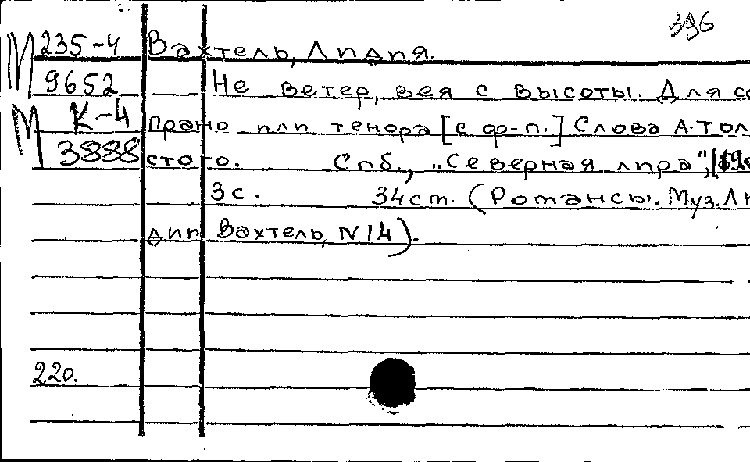 396
М 235-4 Вахтель, Лидия.
9652 Не ветер, вея с высоты. Для со
М К-4 прано или тенора [с ф-п.] Слова А. Тол
3888 стого. Спб., "Северная лира",
3с. 34ст. (Романсы. Муз. Ли
дии Вахтель, N14).
220.